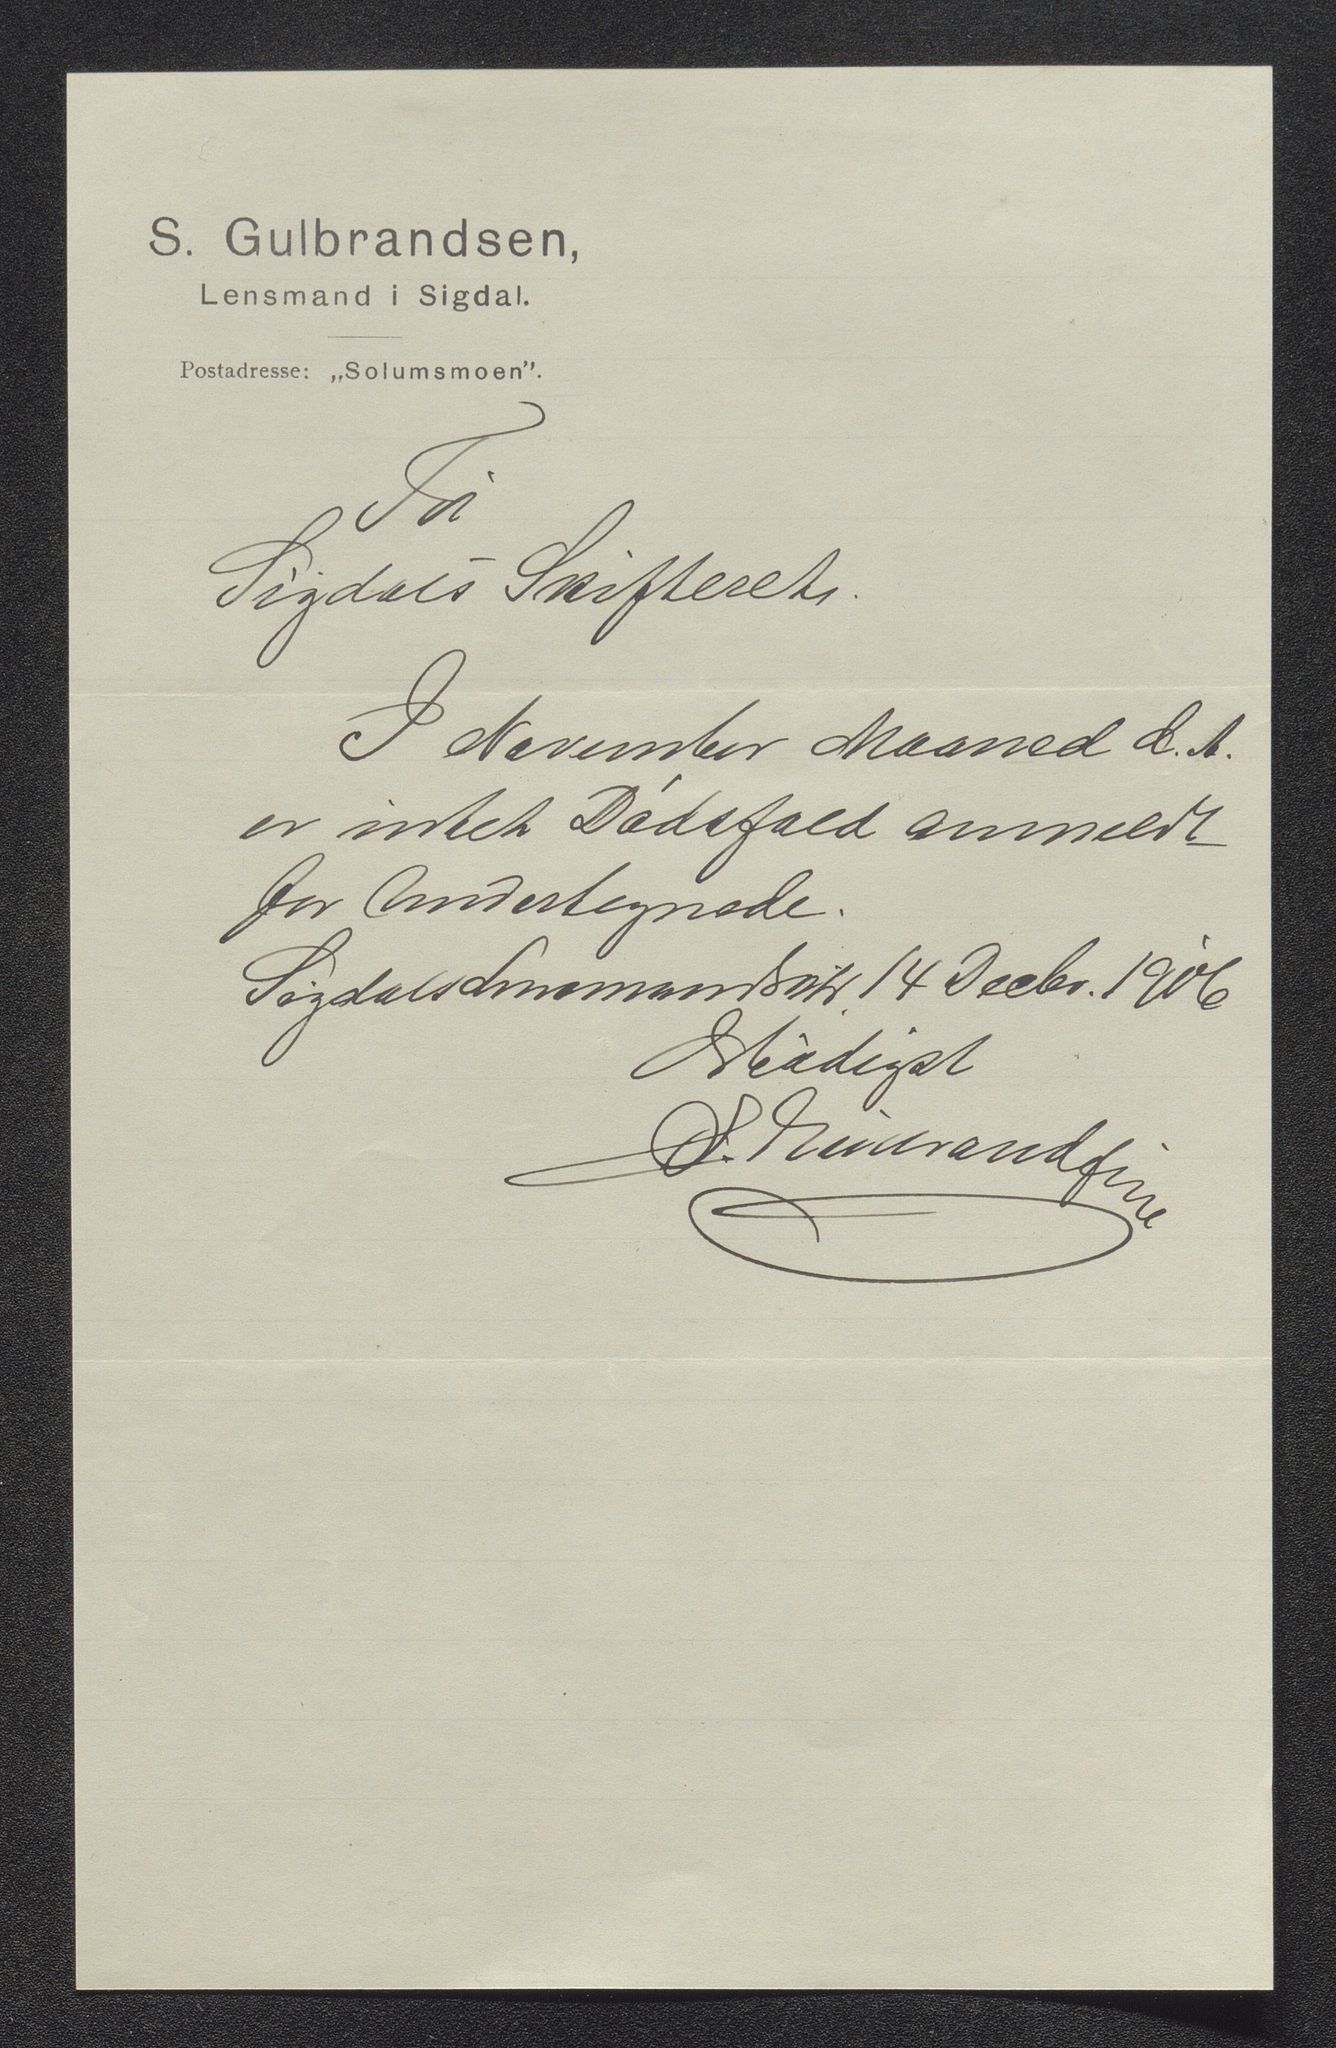 S. Gulbrandsen,
Lensmand i Sigdal.
Postadresse: „Solumsmoen”.
Til
Sigdals Skifteret.
I November Maaned d. A.
er intet Dødsfald anmeldt
for Undertegnede.
Sigdals Lensmandsktr. 14 Decbr. 1906
Ærbødigst
S. Gulbrandsen